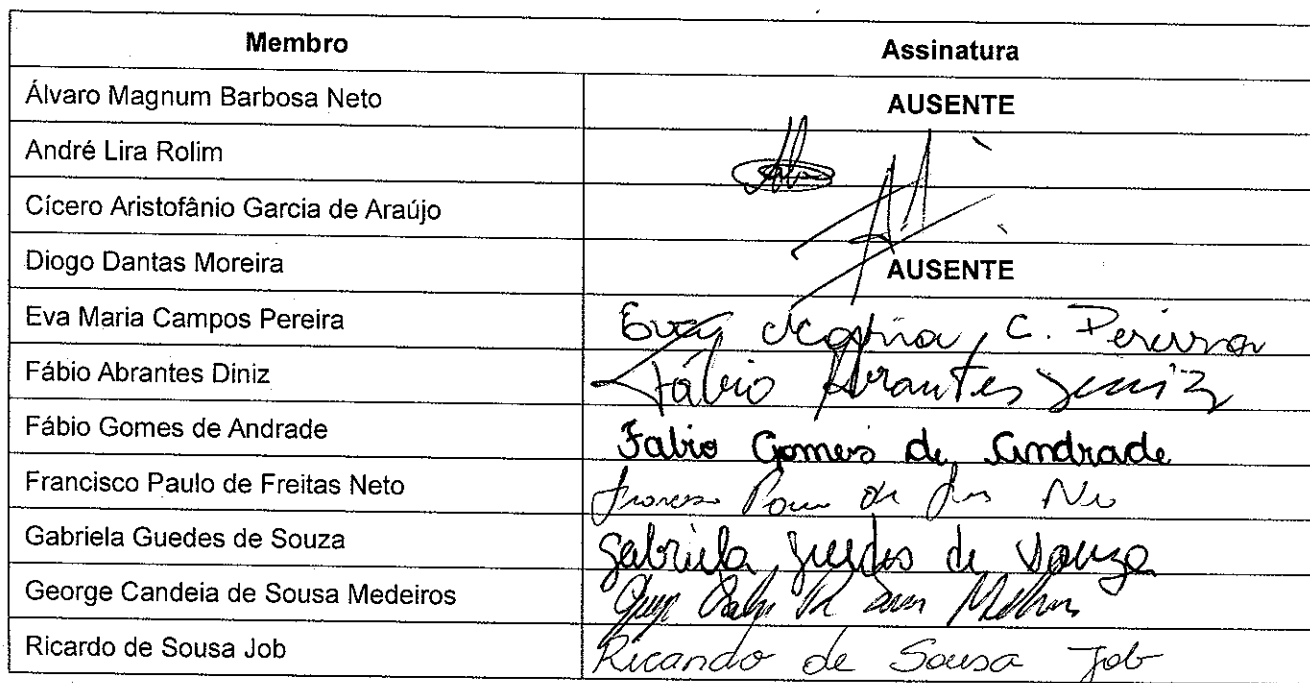 Membro Assinatura
Álvaro Magnum Barbosa Neto AUSENTE
André Lira Rolim
Cícero Aristofânio Garcia de Araújo
Diogo Dantas Moreira AUSENTE
Eva Maria Campos Pereira Eva Maria C. Pereira
Fábio Abrantes Diniz Fábio Abrantes Diniz
Fábio Gomes de Andrade Fabio Gomes de Andrade
Francisco Paulo de Freitas Neto
Gabriela Guedes de Souza Gabriela Guedes de Souza
George Candeia de Sousa Medeiros
Ricardo de Sousa Job Ricardo de Sousa Job